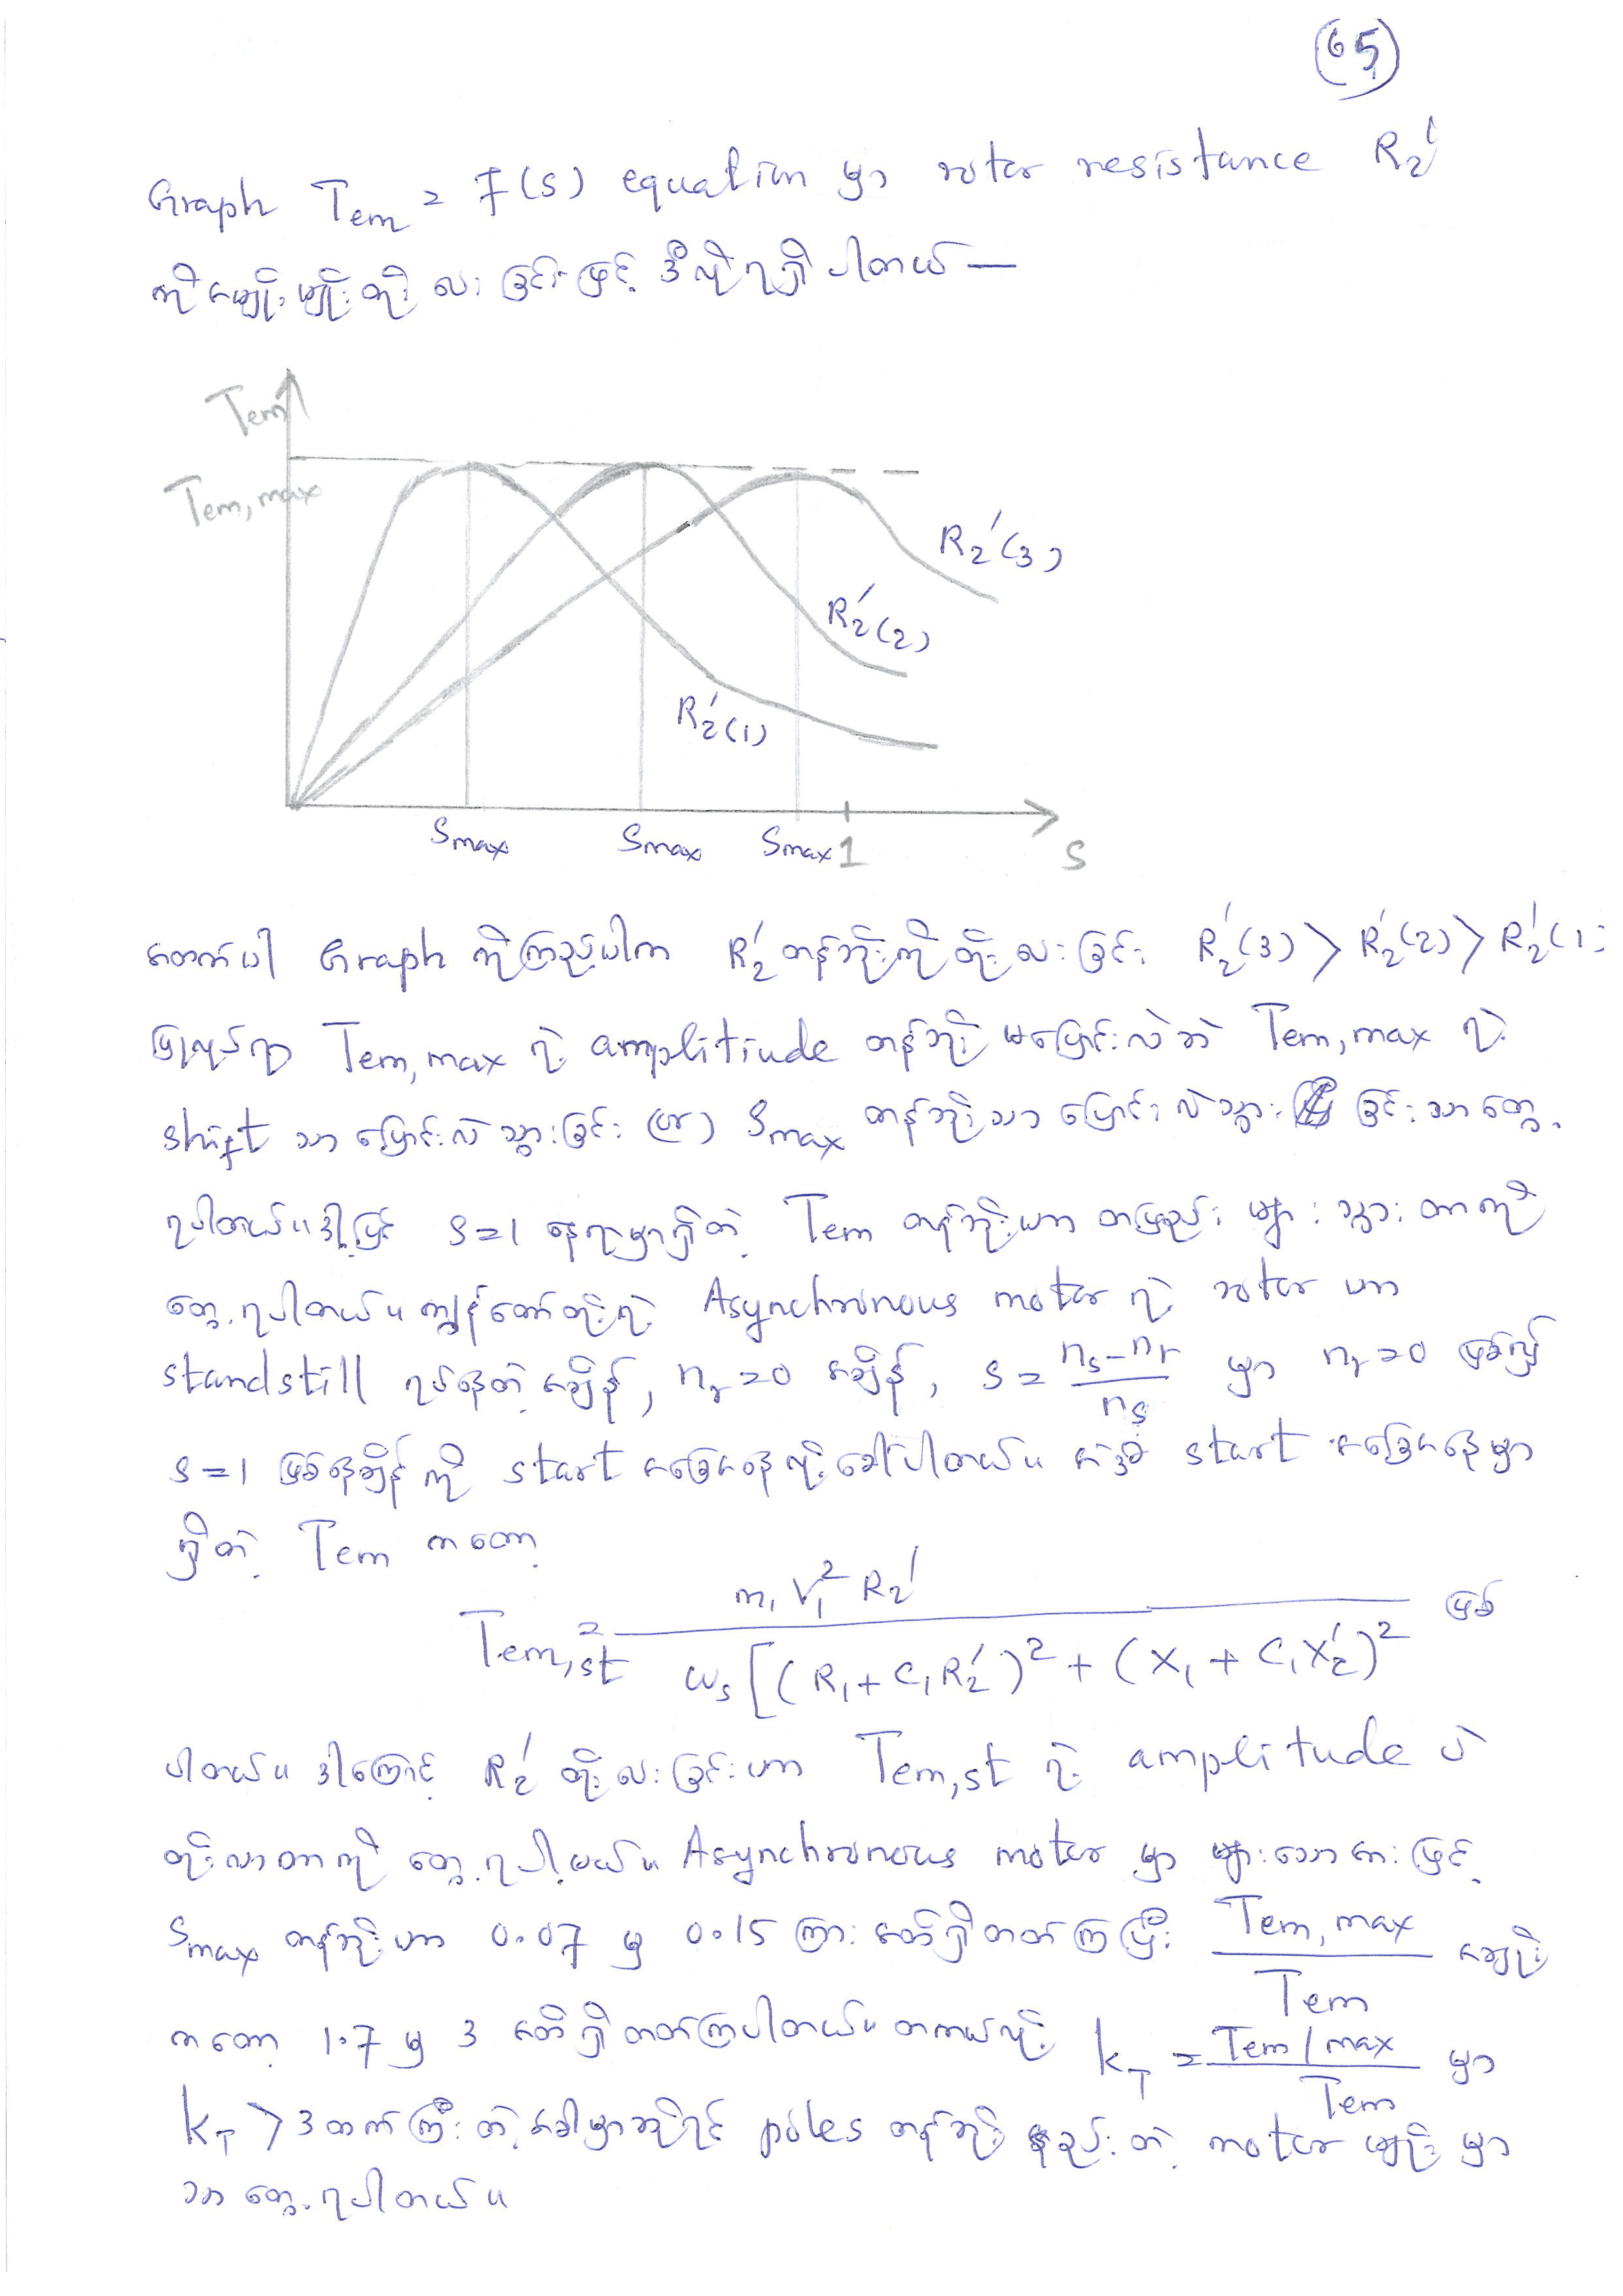 65
Graph Tem = f(s) equation မှာ rotor resistance R2'
ကို မျိုးမျိုးတိုးပေးခြင်းဖြင့် ဒီလိုရရှိပါတယ် —
Tem
Tem,max
R2'(3)
R2'(2)
R2'(1)
Smax Smax Smax 1 S
အောက်ပါ Graph ကိုကြည့်ပါက R2' တန်ဘိုးကိုတိုးပေးခြင်း R2'(3) > R2'(2) > R2'(1)
ပြုလုပ်ရာ Tem,max ရဲ့ amplitiude တန်ဘိုး မပြောင်းလဲဘဲ Tem,max ရဲ့
shift သာ ပြောင်းလဲသွားခြင်း (မှ) Smax တန်ဘိုးသာ ပြောင်းလဲသွားခြင်းသာ တွေ့
ရပါတယ်။ ဒါ့ပြင် S=1 နေရာမှာရှိတဲ့ Tem တန်ဘိုးဟာ တဖြည်းများသွားတာကို
တွေ့ရပါတယ်။ ကျွန်တော်တို့ရဲ့ Asynchronous motor ရဲ့ rotor ဟာ
standstill ရပ်နေတဲ့အချိန်, nr=0 အချိန်, S = ns-nr / ns မှာ nr=0 ဖြစ်လို့
S=1 ဖြစ်နေချိန်ကို start အခြေအနေလို့ခေါ်ပါတယ်။ အဲ့ဒီ start အခြေအနေမှာ
ရှိတဲ့ Tem ကတော့
Tem,st = m1 V1² R2' / ωs[(R1+C1R2')² + (X1+C1X2')² ဖြစ်
ပါတယ်။ ဒါ့ကြောင့် R2' တိုးပေးခြင်းဟာ Tem,st ရဲ့ amplitude ပဲ
တိုးလာတာကို တွေ့ရပါ့မယ်။ Asynchronous motor မှာ များသောအားဖြင့်
Smax တန်ဘိုးဟာ 0.07 မှ 0.15 ကြားအတွင်းရှိတတ်ကြပြီး Tem,max / Tem အချိုး
ကတော့ 1.7 မှ 3 အထိရှိတတ်ကြပါတယ်။ တကယ်လို့ kT = Tem/max / Tem မှာ
kT > 3 ထက်ကြီးတဲ့အခါမှာဆိုရင် poles တန်ဘိုး နည်းတဲ့ motor မျိုးမှာ
သာ တွေ့ရပါတယ်။